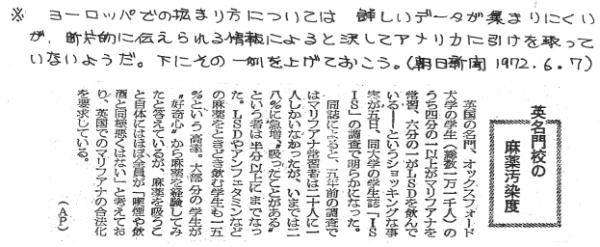 ※ ヨーロッパでの拡まり方については 詳しいデータが集まりにくい
が、断片的に伝えられる情報によると決してアメリカに引けを取って
いないようだ。下にその一例を上げておこう。(朝日新聞 1972.6.7)
英名門校の
麻薬汚染度
英国の名門、オックスフォード
大学の学生(総数一万一千人)の
うち四分の一以上がマリフアナを
常習、六分の一がLSDを飲んで
いる――というショッキングな事
実が五日、同大学の学生誌「IS
IS」の調査で明らかになった。
同誌によると、五年前の調査で
はマリフアナ常習者は二十人に一
人しかいなかったが、いまでは二
八%に急増、“吸ったことがある”
という者は半分以上にまでなっ
た。LSDやアンフェタミンなど
の麻薬をときどき飲む学生も一五
%という高率。大部分の学生が
“好奇心”から麻薬を経験してみ
たと答えているが、麻薬を吸うこ
と自体にはほぼ全員が「喫煙や飲
酒と同様悪くはない」と考えてお
り、英国でのマリフアナの合法化
を要求している。
(AP)